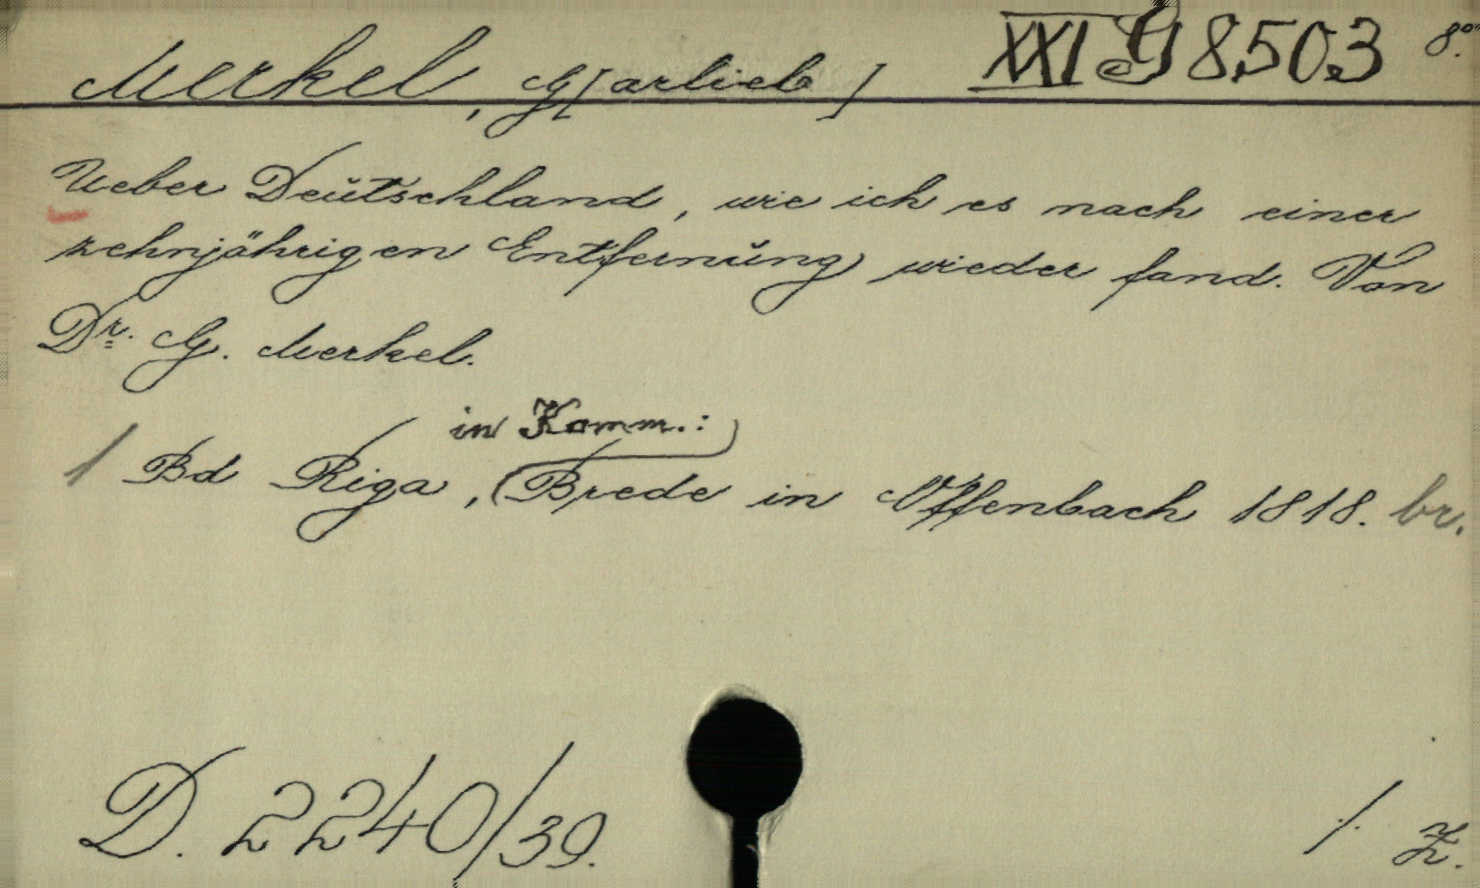 Merkel, G[arlieb] XXI G 8503 8°.
Ueber Deutschland, wie ich es nach einer
zehnjährigen Entfernung wieder fand. Von
Dr. G. Merkel.
in Komm.:
1 Bd Riga, (Brede in Offenbach 1818. br.
D. 2240/39. ./. Z.